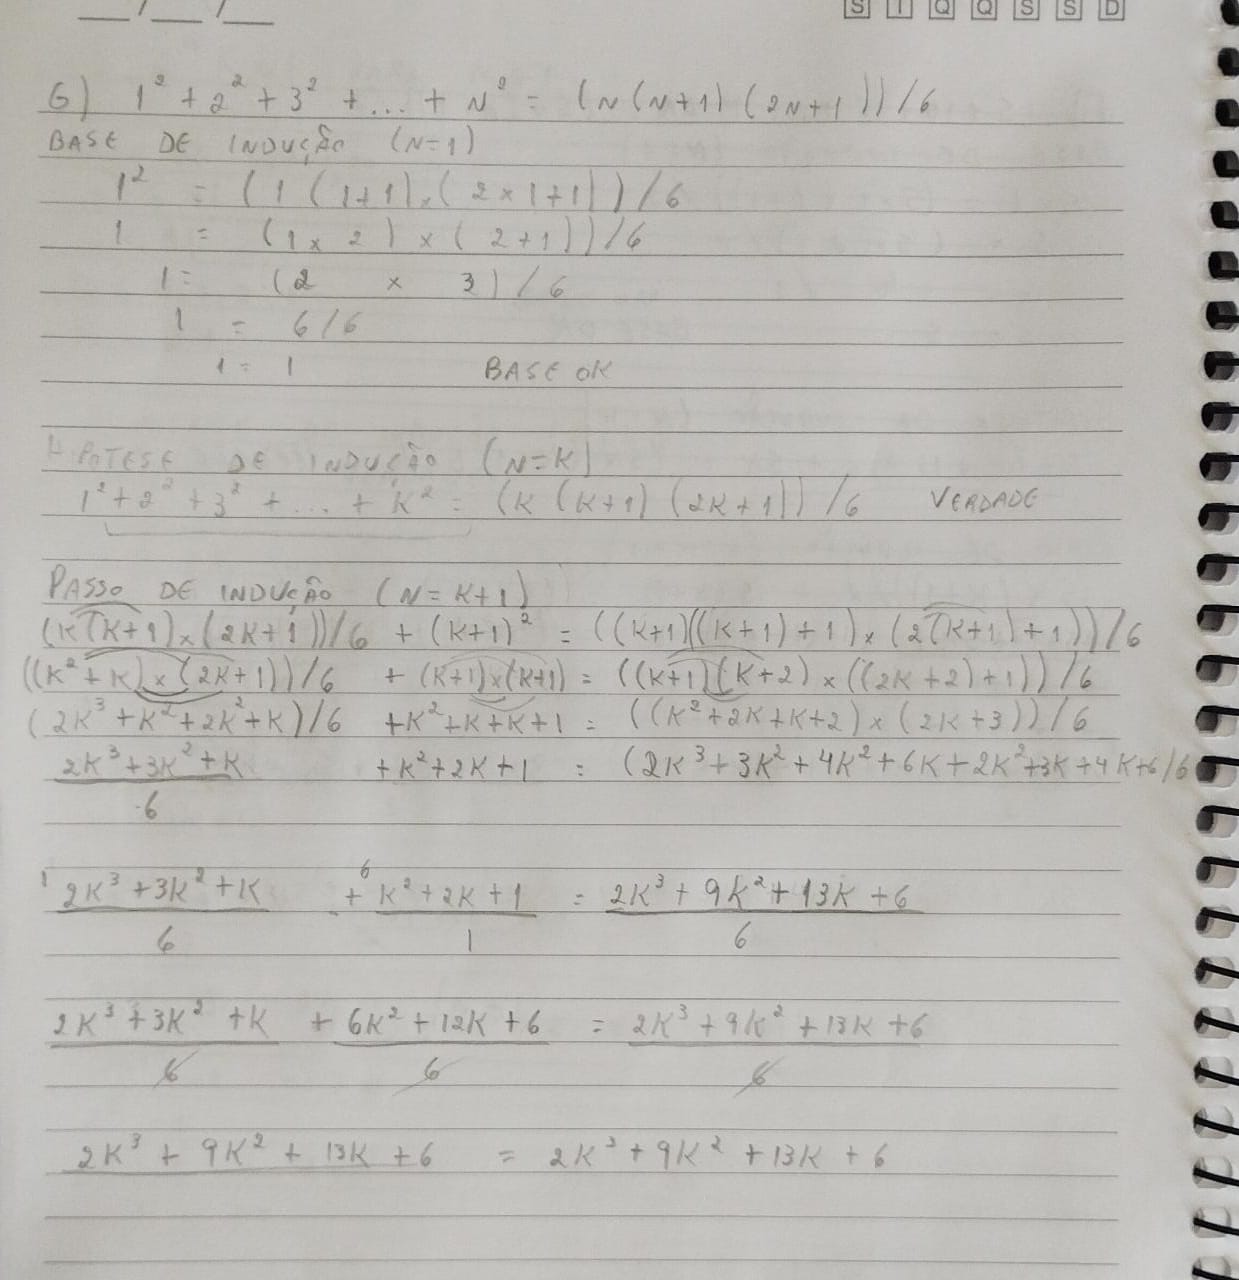 __/__/__ S T Q Q S S D
6) 1² + 2² + 3² + ... + N² = (N (N+1) (2N+1))/6
BASE DE INDUÇÃO (N=1)
1² = (1 (1+1) x (2x1+1))/6
1 = (1 x 2) x (2+1))/6
1 = (2 x 3)/6
1 = 6/6
1 = 1 BASE OK
HIPOTESE DE INDUÇÃO (N=K)
1² + 2² + 3² + ... + K² = (K (K+1) (2K+1))/6 VERDADE
PASSO DE INDUÇÃO (N=K+1)
(K(K+1) x (2K+1))/6 + (K+1)² = ((K+1)((K+1)+1) x (2(K+1)+1))/6
((K²+K) x (2K+1))/6 + (K+1) x (K+1) = ((K+1)(K+2) x ((2K+2)+1))/6
(2K³+K²+2K²+K)/6 + K²+K+K+1 = ((K²+2K+K+2) x (2K+3))/6
2K³+3K²+K/6 + K²+2K+1 = (2K³+3K²+4K²+6K+2K²+3K+4K+6/6
¹ 2K³+3K²+K/6 +⁶ K²+2K+1/1 = 2K³+9K²+13K+6/6
2K³+3K²+K/6 + 6K²+12K+6/6 = 2K³+9K²+13K+6/6
2K³ + 9K² + 13K + 6 = 2K³ + 9K² + 13K + 6